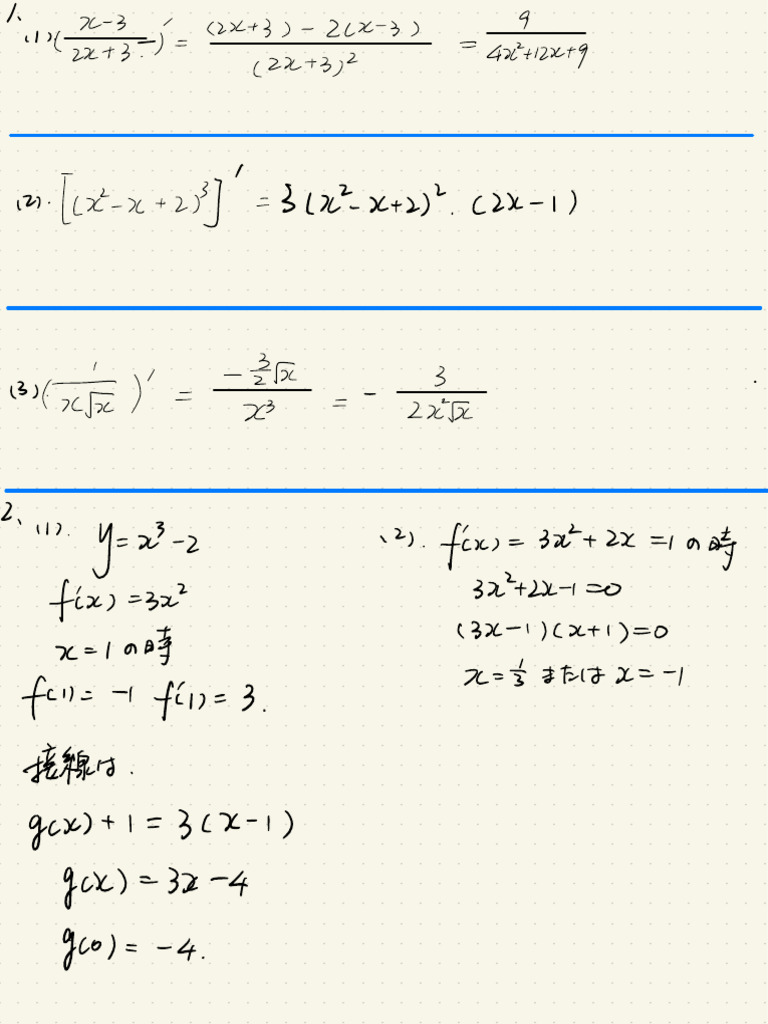 1、
(1) (x-3 / 2x+3)' = (2x+3) - 2(x-3) / (2x+3)² = 9 / 4x²+12x+9
(2). [(x²-x+2)³]' = 3(x²-x+2)². (2x-1)
(3) (1 / x√x)' = -3/2√x / x³ = - 3 / 2x²√x
2、(1). y=x³-2
f'(x)=3x²
x=1の時
f(1)= -1 f'(1)= 3.
接線は.
g(x)+1=3(x-1)
g(x)=3x-4
g(0)= -4.
(2). f'(x)= 3x²+2x =1の時
3x²+2x-1=0
(3x-1)(x+1)=0
x=1/3 または x=-1